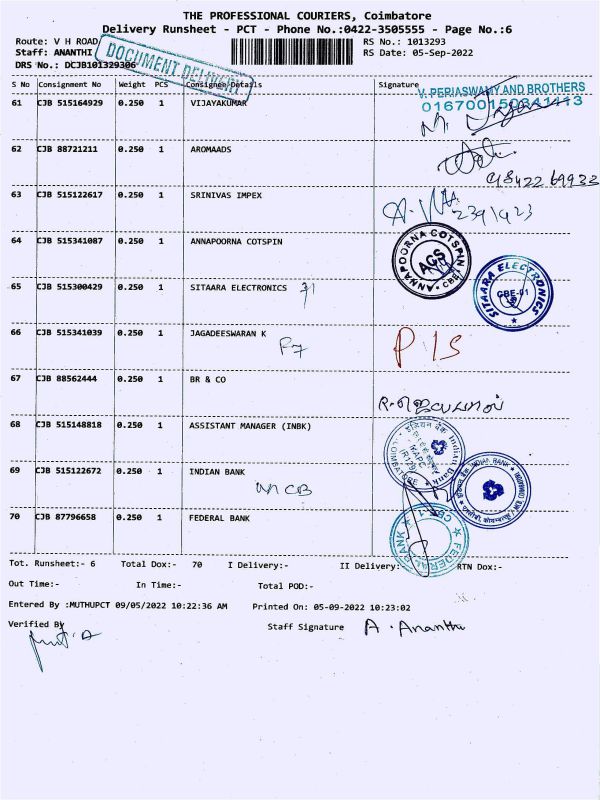 THE PROFESSIONAL COURIERS, Coimbatore
Delivery Runsheet - PCT - Phone No.:0422-3505555 - Page No.:6
Route: V H ROAD
RS No.: 1013293
Staff: ANANTHI
RS Date: 05-Sep-2022
DRS No.: DCJB101329306
DOCUMENT DELIVERY
S No Consignment No Weight PCS Consignee Details Signature
V. PERIASWAMY AND BROTHERS
61 CJB 515164929 0.250 1 VIJAYAKUMAR
62 CJB 88721211 0.250 1 AROMAADS
63 CJB 515122617 0.250 1 SRINIVAS IMPEX
64 CJB 515341087 0.250 1 ANNAPOORNA COTSPIN
ANNAPOORNA COTSPIN
AGS
CBE
65 CJB 515300429 0.250 1 SITAARA ELECTRONICS
SITAARA ELECTRONICS
CBE-01
66 CJB 515341039 0.250 1 JAGADEESWARAN K
P/S
67 CJB 88562444 0.250 1 BR & CO
68 CJB 515148818 0.250 1 ASSISTANT MANAGER (INBK)
इंडियन बैंक Indian Bank
COIMBATORE
69 CJB 515122672 0.250 1 INDIAN BANK
इंडियन बैंक INDIAN BANK
70 CJB 87796658 0.250 1 FEDERAL BANK
FEDERAL BANK
Tot. Runsheet:- 6 Total Dox:- 70 I Delivery:- II Delivery:- RTN Dox:-
Out Time:- In Time:- Total POD:-
Entered By :MUTHUPCT 09/05/2022 10:22:36 AM Printed On: 05-09-2022 10:23:02
Verified By
Staff Signature A. Ananthi